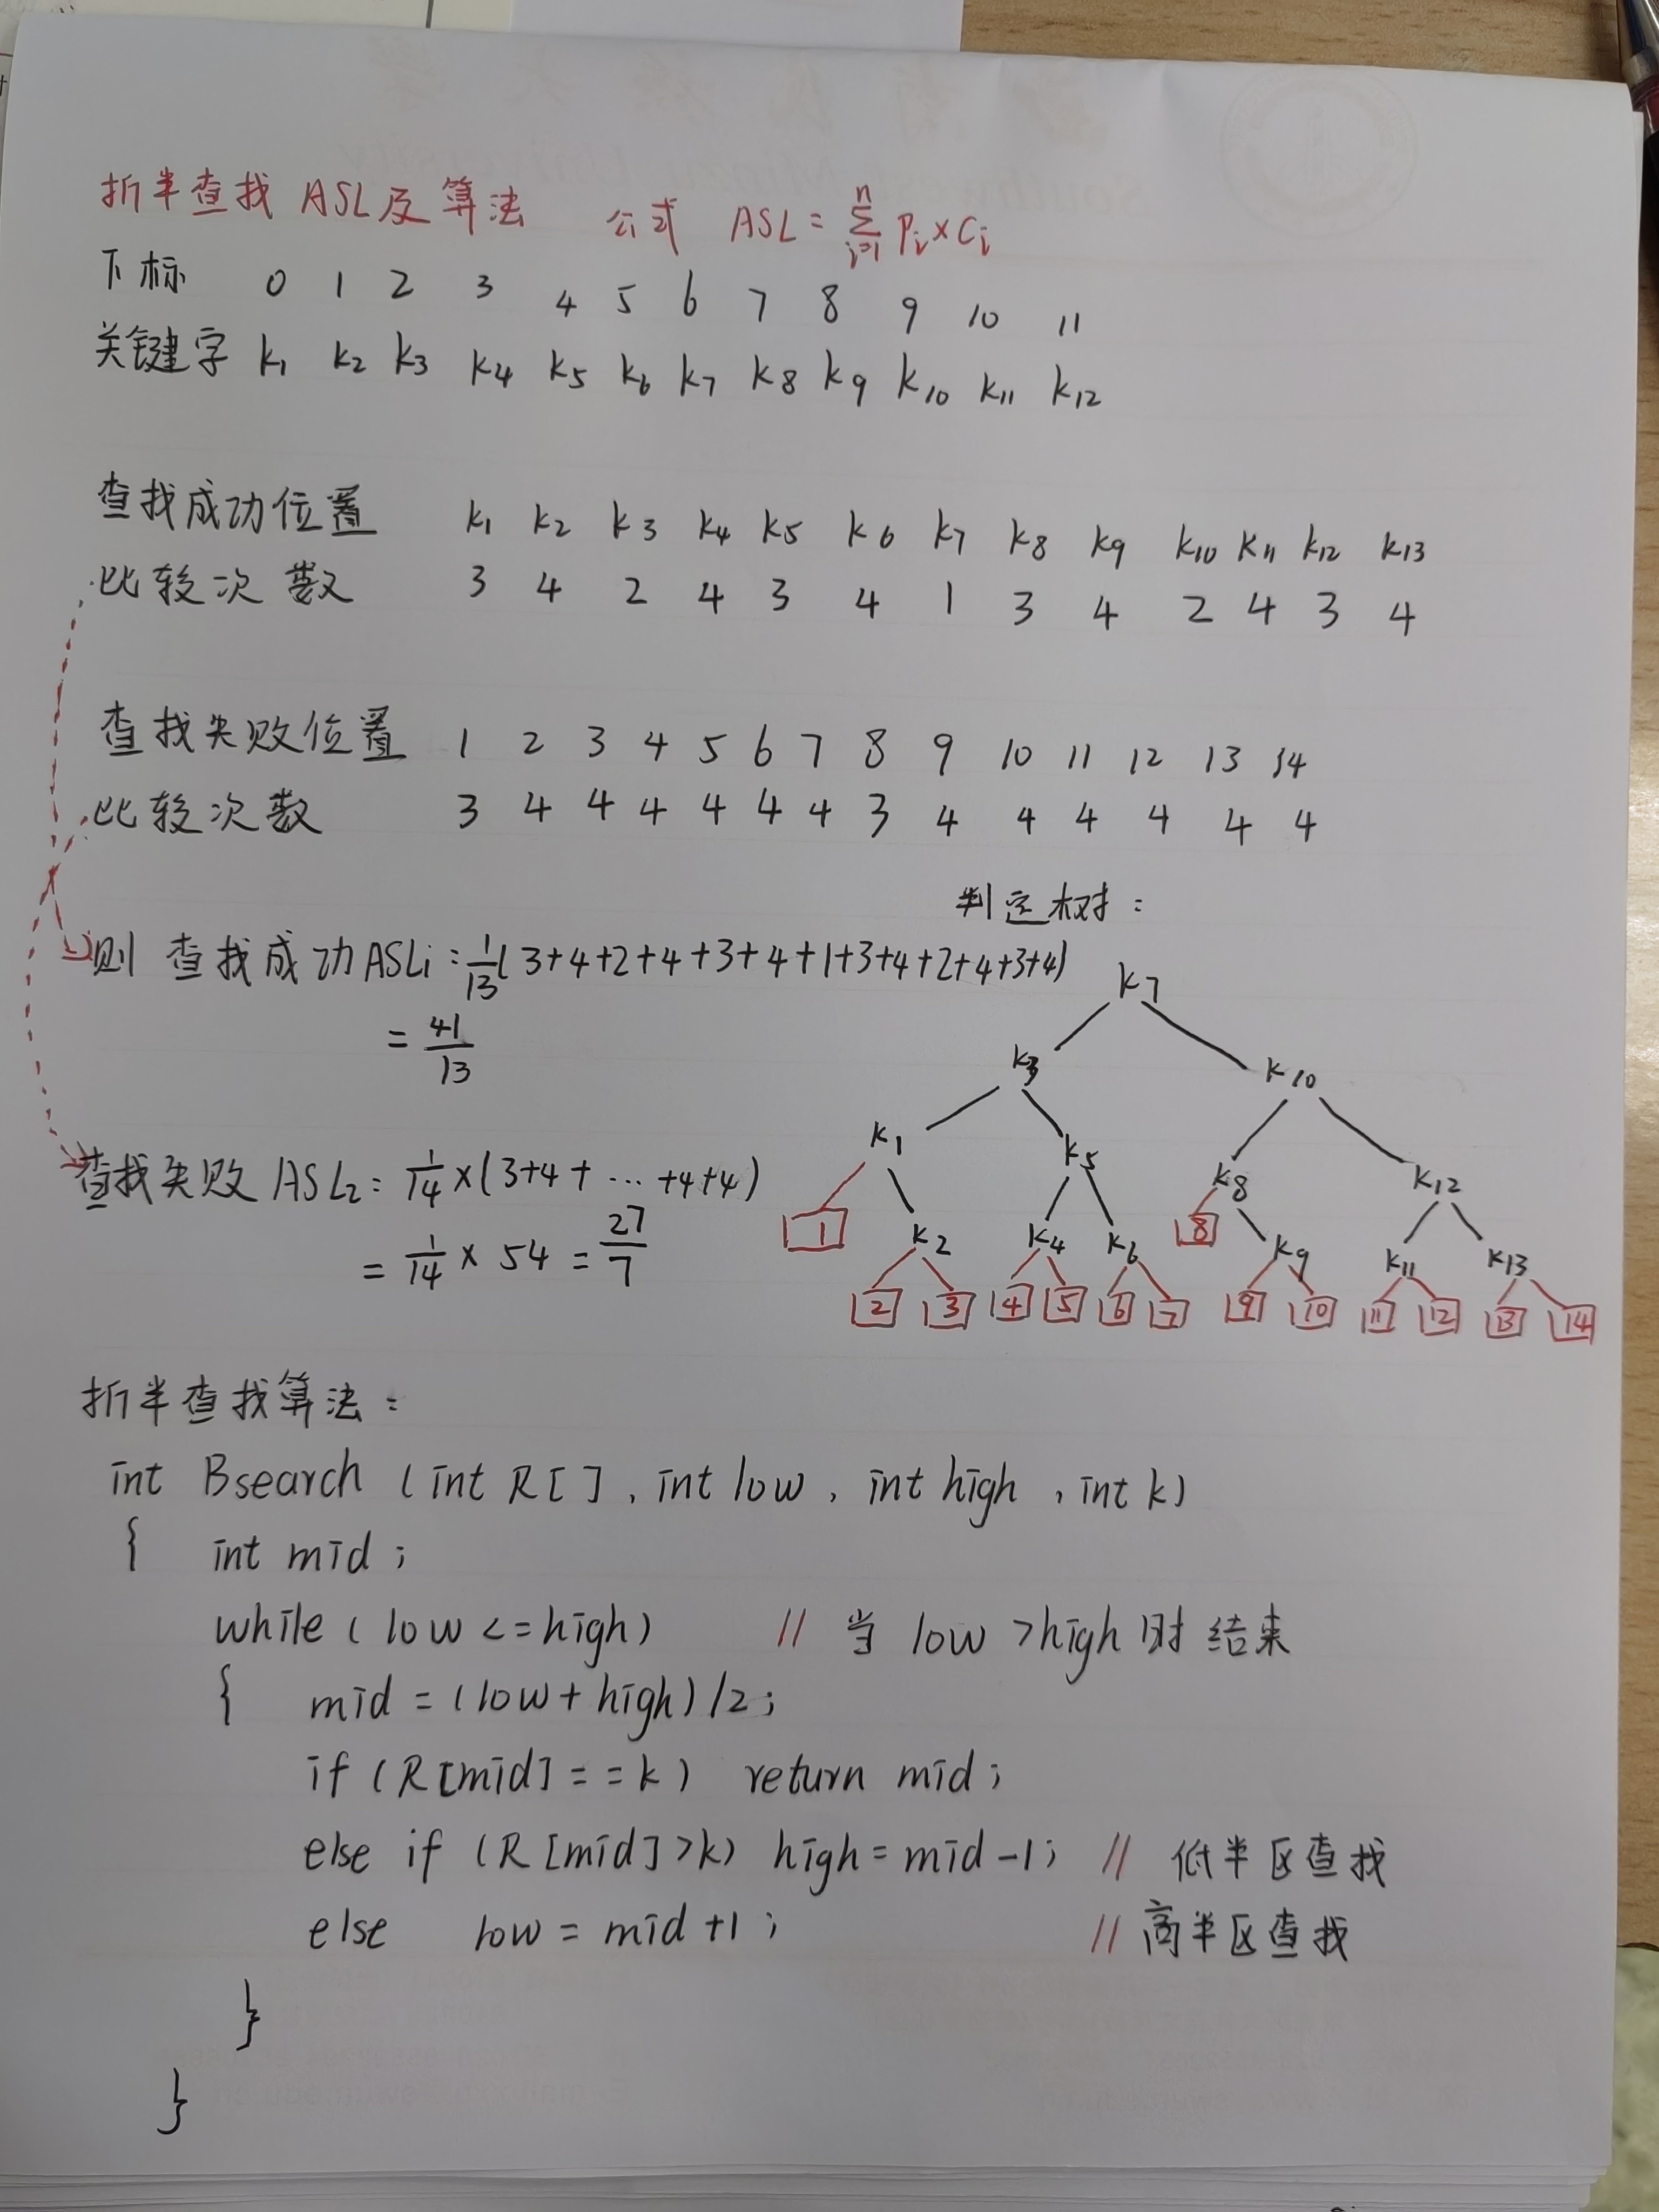 折半查找 ASL及算法 公式 ASL = n∑i=1 Pi×Ci
下标 0 1 2 3 4 5 6 7 8 9 10 11
关键字 k1 k2 k3 k4 k5 k6 k7 k8 k9 k10 k11 k12
查找成功位置 k1 k2 k3 k4 k5 k6 k7 k8 k9 k10 k11 k12 k13
比较次数 3 4 2 4 3 4 1 3 4 2 4 3 4
查找失败位置 1 2 3 4 5 6 7 8 9 10 11 12 13 14
比较次数 3 4 4 4 4 4 4 3 4 4 4 4 4 4
判定树:
则 查找成功ASLi = 1/13(3+4+2+4+3+4+1+3+4+2+4+3+4)
= 41/13
k7
k3 k10
k1 k5 k8 k12
1 k2 k4 k6 8 k9 k11 k13
2 3 4 5 6 7 9 10 11 12 13 14
查找失败 ASL2 = 1/14×(3+4+ … +4+4)
= 1/14 × 54 = 27/7
折半查找算法:
int Bsearch (int R[], int low, int high, int k)
{ int mid;
while (low <= high) // 当 low >high 时结束
{ mid = (low + high)/2;
if (R[mid] == k) return mid;
else if (R[mid]>k) high = mid-1; // 低半区查找
else low = mid+1; // 高半区查找
}
}